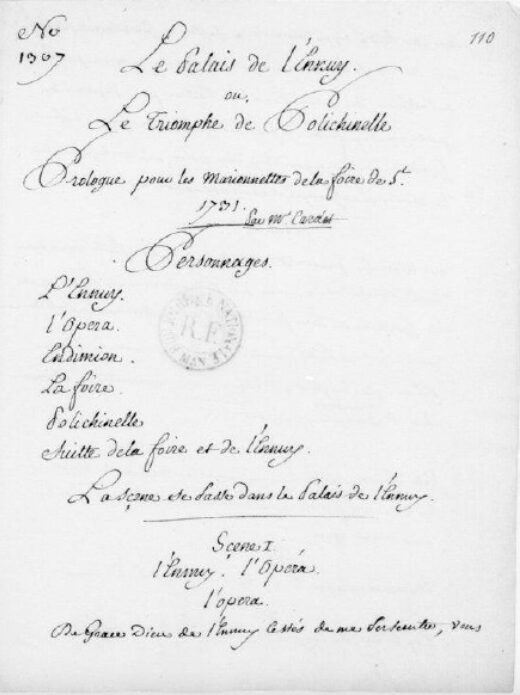 No 110
1307
Le Palais de l'Ennuy.
ou,
Le Triomphe de Polichinelle
Prologue pour les Marionnettes de la foire de St.
1731. Par Mr
Personnages.
L'Ennuy.
l'Opera.
Endimion.
La foire.
Polichinelle
Suitte de la foire et de l'Ennuy.
R.F.
La sçene se Passe dans le Palais de l'Ennuy.
Sçene I.
l'Ennuy. l'Opéra.
l'opera.
De Grace Dieu de l'Ennuy cessés de me vous